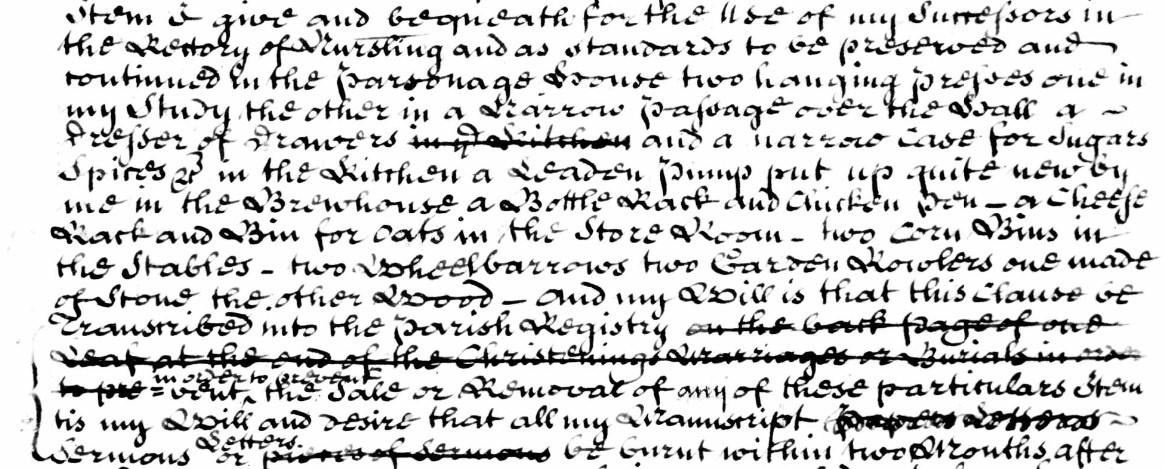 Item I give and bequeath for the Use of my Successors in
the Rectory of Nursling and as standards to be preserved and
continued in the Parsonage House two hanging Presses one in
my Study the other in a Narrow Passage over the Hall a
Dresser of Drawers in ye Kitchen and a narrow Case for Sugars
Spices &c in the Kitchen a Leaden Pump put up quite new by
me in the Brewhouse a Bottle Rack and Chicken Pen - a Cheese
Rack and Bin for Oats in the Store Room - two Corn Bins in
the Stables - two Wheelbarrows two Garden Rowlers one made
of Stone the other Wood - and my Will is that this Clause be
Transcribed into the Parish Registry on the back page of one
Leaf at the end of the Christenings Marriages or Burials in order
in order to prevent
to pre=vent ^ the Sale or Removal of any of these particulars Item
tis my Will and desire that all my Manuscript Papers Letters
Letters
Sermons or pieces of Sermons be burnt within two Months after